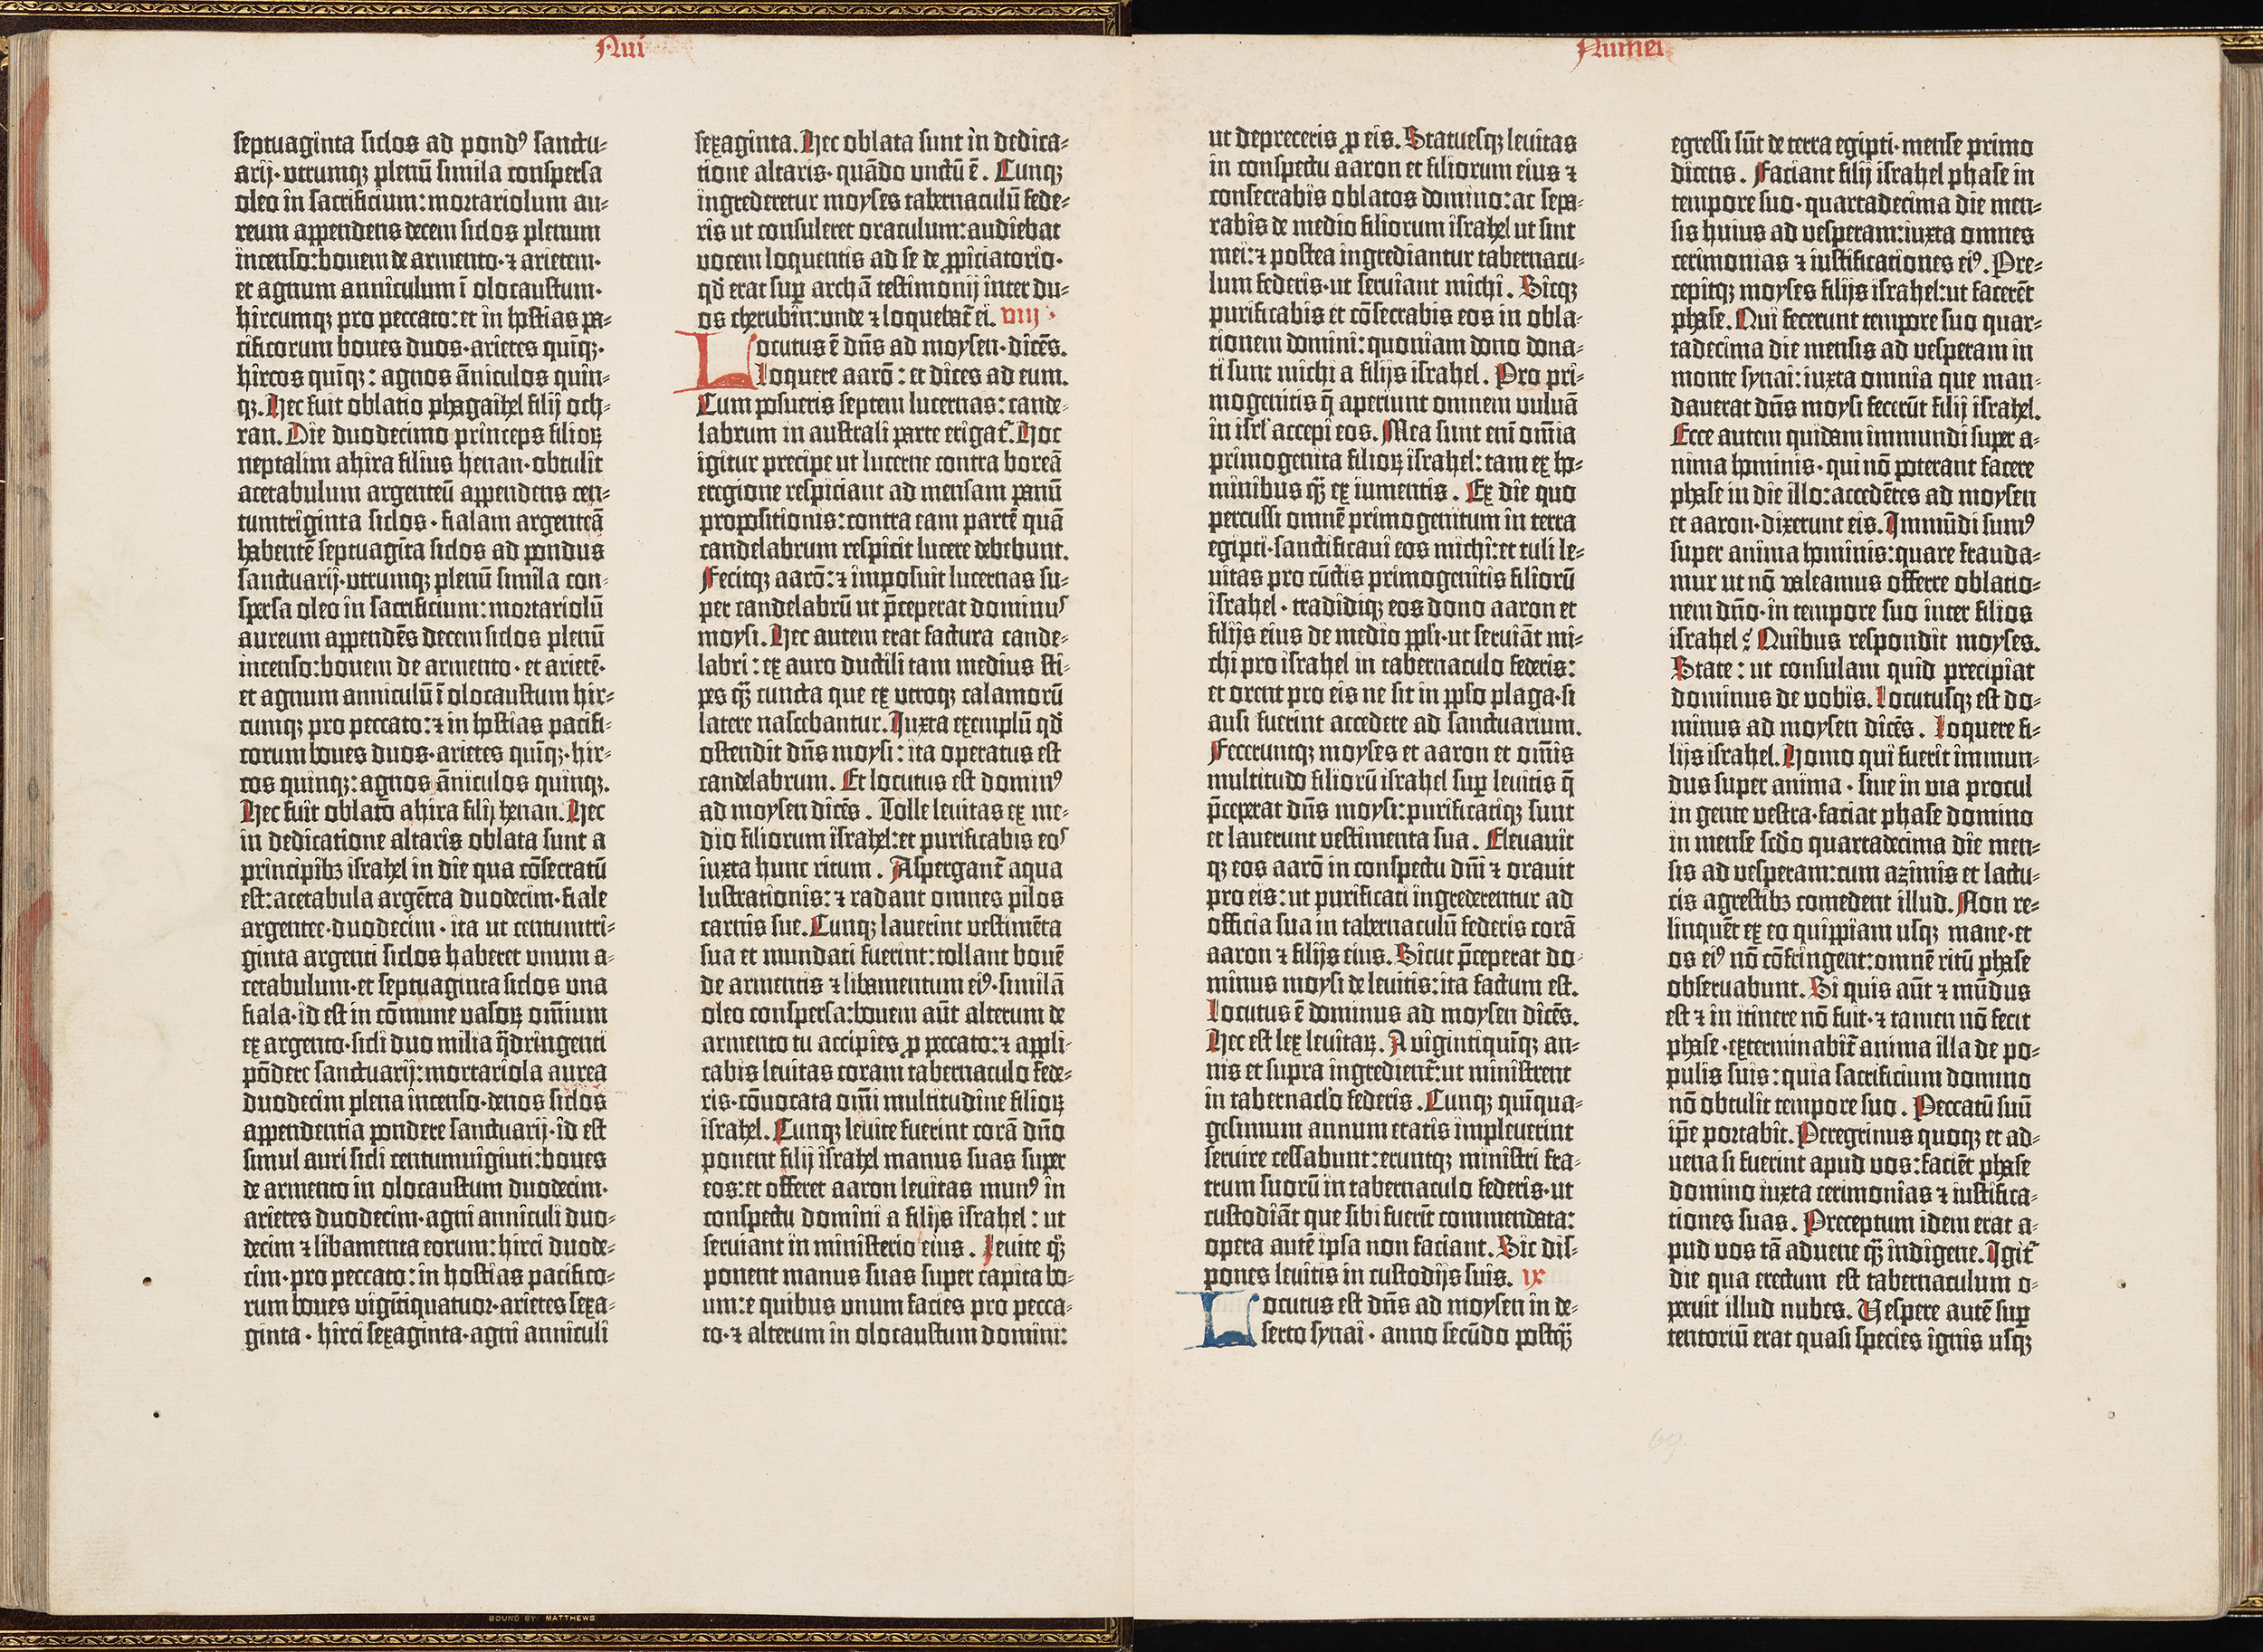 Nui
septuaginta siclos ad pondꝰ sanctu-
arij·vtrumqꝫ plenū simila conspersa
oleo in sacrificium: mortariolum au-
reum appendens decem siclos plenum
incenso: bouem de armento·⁊ arietem·
et agnum anniculum ī olocaustum·
hircumqꝫ pro peccato: et in hostias pa-
cificorum boues duos·arietes quīqꝫ·
hircos quīqꝫ: agnos āniculos quin-
qꝫ. Hec fuit oblatio phagaihel filij och-
ran. Die duodecimo princeps filioꝝ
neptalim ahira filius henan·obtulit
acetabulum argenteū appendens cen-
tumtriginta siclos·fialam argenteā
habentē septuagīta siclos ad pondus
sanctuarij·vtrumqꝫ plenū simila con-
spersa oleo in sacrificium: mortariolū
aureum appendēs decem siclos plenū
incenso: bouem de armento·et arietē·
et agnum anniculū ī olocaustum hir-
cumqꝫ pro peccato: ⁊ in hostias pacifi-
corum boues duos·arietes quīqꝫ·hir-
cos quinqꝫ: agnos āniculos quinqꝫ.
Hec fuit oblatō ahira filij henan. Hec
in dedicatione altaris oblata sunt a
principibꝫ israhel in die qua cōsecratū
est: acetabula argētea duodecim·fiale
argentee·duodecim·ita ut centumtri-
ginta argenti siclos haberet vnum a-
cetabulum·et septuaginta siclos vna
fiala·id est in cōmune vasoꝝ om̄ium
ex argento·sicli duo milia q̄dringenti
pōdere sanctuarij: mortariola aurea
duodecim plena incenso·denos siclos
appendentia pondere sanctuarij·id est
simul auri sicli centumuiginti: boues
de armento in olocaustum duodecim·
arietes duodecim·agni anniculi duo-
decim ⁊ libamenta eorum: hirci duode-
cim·pro peccato: in hostias pacifico-
rum boues vigītiquatuor·arietes sexa-
ginta·hirci sexaginta·agni anniculi
sexaginta. Hec oblata sunt in dedica-
tione altaris·quādo vnctū ē. Cunqꝫ
ingrederetur moyses tabernaculū fede-
ris ut consuleret oraculum: audiebat
vocem loquentis ad se de ꝓpiciatorio·
qđ erat suꝑ archā testimonij inter du-
os cherubin: vnde ⁊ loquebat᷑ ei. viij·
Locutus ē dn̄s ad moysen·dicēs.
Loquere aarō: et dices ad eum.
Cum posueris septem lucernas: cande-
labrum in australi parte erigat᷑. Hoc
igitur precipe ut lucerne contra boreā
eregione respiciant ad mensam panū
propositionis: contra eam partē quā
candelabrum respicit lucere debebunt.
Fecitqꝫ aarō: ⁊ imposuit lucernas su-
per candelabrū ut p̄ceperat dominus
moysi. Hec autem erat factura cande-
labri: ex auro ductili tam medius sti-
pes qͣ̄ cuncta que ex vtroqꝫ calamorū
latere nascebantur. Iuxta exemplū qđ
ostendit dn̄s moysi: ita operatus est
candelabrum. Et locutus est dominꝰ
ad moysen dicēs. Tolle leuitas ex me-
dio filiorum israhel: et purificabis eos
iuxta hunc ritum. Aspergant᷑ aqua
lustrationis: ⁊ radant omnes pilos
carnis sue. Cunqꝫ lauerint vestimēta
sua et mundati fuerint: tollant bouē
de armentis ⁊ libamentum eiꝰ·similā
oleo conspersa: bouem aūt alterum de
armento tu accipies ꝓ peccato: ⁊ appli-
cabis leuitas coram tabernaculo fede-
ris·cōuocata om̄i multitudine filioꝝ
israhel. Cunqꝫ leuite fuerint corā dn̄o
ponent filij israhel manus suas super
eos: et offeret aaron leuitas munꝰ in
conspectu domini a filijs israhel: ut
seruiant in ministerio eius. Leuite qͦꝫ
ponent manus suas super capita bo-
um: e quibus vnum facies pro pecca-
to·⁊ alterum in olocaustum domini:
Numei
ut depreceris ꝓ eis. Statuesqꝫ leuitas
in conspectu aaron et filiorum eius ⁊
consecrabis oblatos domino: ac sepa-
rabis de medio filiorum israhel ut sint
mei: ⁊ postea ingrediantur tabernacu-
lum federis·ut seruiant michi. Sicqꝫ
purificabis et cōsecrabis eos in obla-
tionem domini: quoniam dono dona-
ti sunt michi a filijs israhel. Pro pri-
mogenitis q̄ aperiunt omnem vuluā
in isrl' accepi eos. Mea sunt eni om̄ia
primogenita filioꝝ israhel: tam ex ho-
minibus qͣ̄ ex iumentis. Ex die quo
percussi omnē primogenitum in terra
egipti·sanctificaui eos michi: et tuli le-
uitas pro cūctis primogenitis filiorū
israhel·tradidiqꝫ eos dono aaron et
filijs eius de medio ppl'i·ut seruiāt mi-
chi pro israhel in tabernaculo federis:
et orent pro eis ne sit in pplo plaga·si
ausi fuerint accedere ad sanctuarium.
Feceruntqꝫ moyses et aaron et om̄is
multitudo filiorū israhel suꝑ leuitis q̄
p̄ceperat dn̄s moysi: purificatiqꝫ sunt
et lauerunt vestimenta sua. Eleuauit
qꝫ eos aarō in conspectu dn̄i ⁊ orauit
pro eis: ut purificati ingrederentur ad
officia sua in tabernaculū federis corā
aaron ⁊ filijs eius. Sicut p̄ceperat do-
minus moysi de leuitis: ita factum est.
Locutus ē dominus ad moysen dicēs.
Hec est lex leuitaꝝ. A vigintiquīqꝫ an-
nis et supra ingredient᷑: ut ministrent
in tabernacl'o federis. Cunqꝫ quīqua-
gesimum annum etatis impleuerint
seruire cessabunt: eruntqꝫ ministri fra-
trum suorū in tabernaculo federis·ut
custodiāt que sibi fuerīt commendata:
opera autē ipsa non faciant. Sic dis-
pones leuitis in custodijs suis. ix
Locutus est dn̄s ad moysen in de-
serto synai·anno secūdo postqͣ̄
egressi sūt de terra egipti·mense primo
dicens. Faciant filij israhel phase in
tempore suo·quartadecima die men-
sis huius ad vesperam: iuxta omnes
cerimonias ⁊ iustificationes eiꝰ. Pre-
cepitqꝫ moyses filijs israhel: ut facerēt
phase. Qui fecerunt tempore suo quar-
tadecima die mensis ad vesperam in
monte synai: iuxta omnia que man-
dauerat dn̄s moysi fecerūt filij israhel.
Ecce autem quidam immundi super a-
nima hominis·qui nō poterant facere
phase in die illo: accedētes ad moysen
et aaron·dixerunt eis. Immūdi sumꝰ
super anima hominis: quare frauda-
mur ut nō valeamus offerre oblatio-
nem dn̄o·in tempore suo inter filios
israhel? Quibus respondit moyses.
State: ut consulam quid precipiat
dominus de vobis. Locutusqꝫ est do-
minus ad moysen dicēs. Loquere fi-
lijs israhel. Homo qui fuerit immun-
dus super anima·siue in via procul
in gente vestra·faciat phase domino
in mense scd̄o quartadecima die men-
sis ad vesperam: cum azimis et lactu-
cis agrestibꝫ comedent illud. Non re-
linquēt ex eo quippiam usqꝫ mane·et
os eiꝰ nō cōfringent: omnē ritū phase
obseruabunt. Si quis aūt ⁊ mūdus
est ⁊ in itinere nō fuit·⁊ tamen nō fecit
phase·exterminabit᷑ anima illa de po-
pulis suis: quia sacrificium domino
nō obtulit tempore suo. Peccatū suū
ip̄e portabit. Peregrinus quoqꝫ et ad-
uena si fuerint apud vos: faciēt phase
domino iuxta cerimonias ⁊ iustifica-
tiones suas. Preceptum idem erat a-
pud vos tā aduene qͣ̄ indigene. Igit᷑
die qua erectum est tabernaculum o-
peruit illud nubes. Vespere autē suꝑ
tentoriū erat quasi species ignis usqꝫ
69.
BOUND BY MATTHEWS